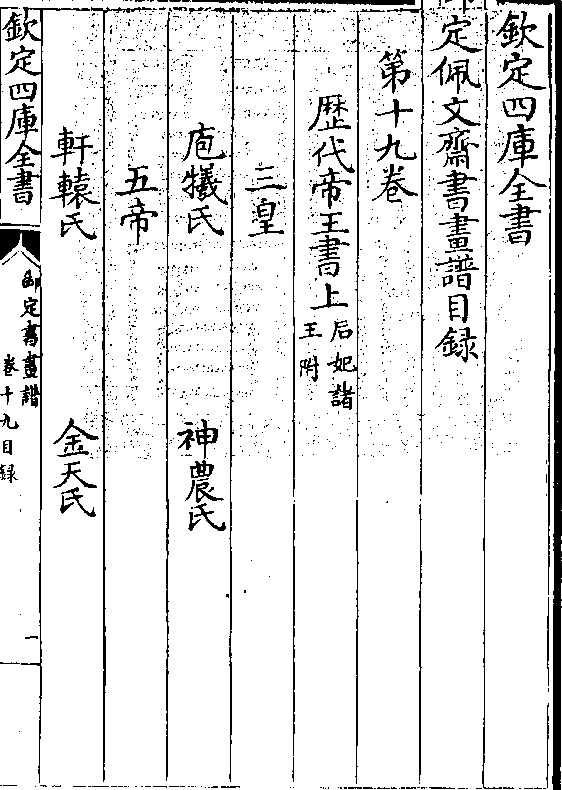 欽定四庫全書
定佩文齋書畫譜目録
第十九卷
歴代帝王書上 后妃諸
王附
三皇
庖犧氏 神農氏
五帝
軒轅氏 金天氏
欽定四庫全書
御定書畫譜
卷十九目録
一